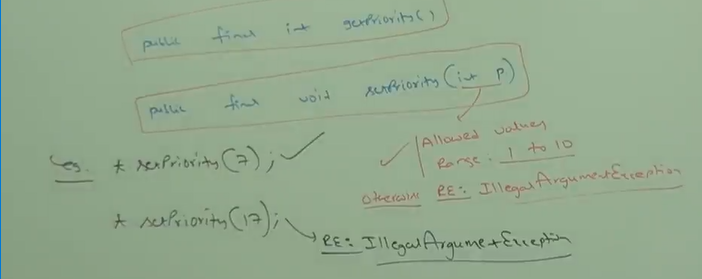 public final int getPriority()
public final void setPriority(int p)
Allowed values
Range: 1 to 10
Otherwise RE: IllegalArgumentException
eg. t setPriority(7);
t setPriority(17);
RE: IllegalArgumentException